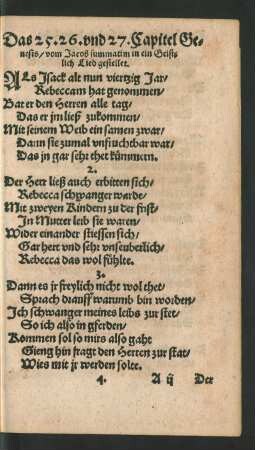 Das 25. 26. vnd 27. Capitel Ge-
nesis/ vom Jacob summatim in ein Geist-
lich Lied gestellet.
ALs Isack alt nun viertzig Jar/
Rebeccam hat genommen/
Bat er den Herren alle tag/
Das er jm ließ zukommen/
Mit seinem Weib ein samen zwar/
Dann sie zumal vnfruchtbar war/
Das jn gar sehr thet kümmern.
2.
Der Herr ließ auch erbitten sich/
Rebecca schwanger warde/
Mit zweyen Kindern zu der frist/
In Mutter leib sie waren/
Wider einander stiessen sich/
Gar hert vnd sehr vnseuberlich/
Rebecca das wol fühlte.
3.
Dann es jr freylich nicht wol thet/
Sprach drauff warumb bin worden/
Ich schwanger meines leibs zur stet/
So ich also in gferden/
Kommen sol so mirs also gaht
Gieng hin fragt den Herren zur stat/
Wies mit jr werden solte.
4. A ij Der